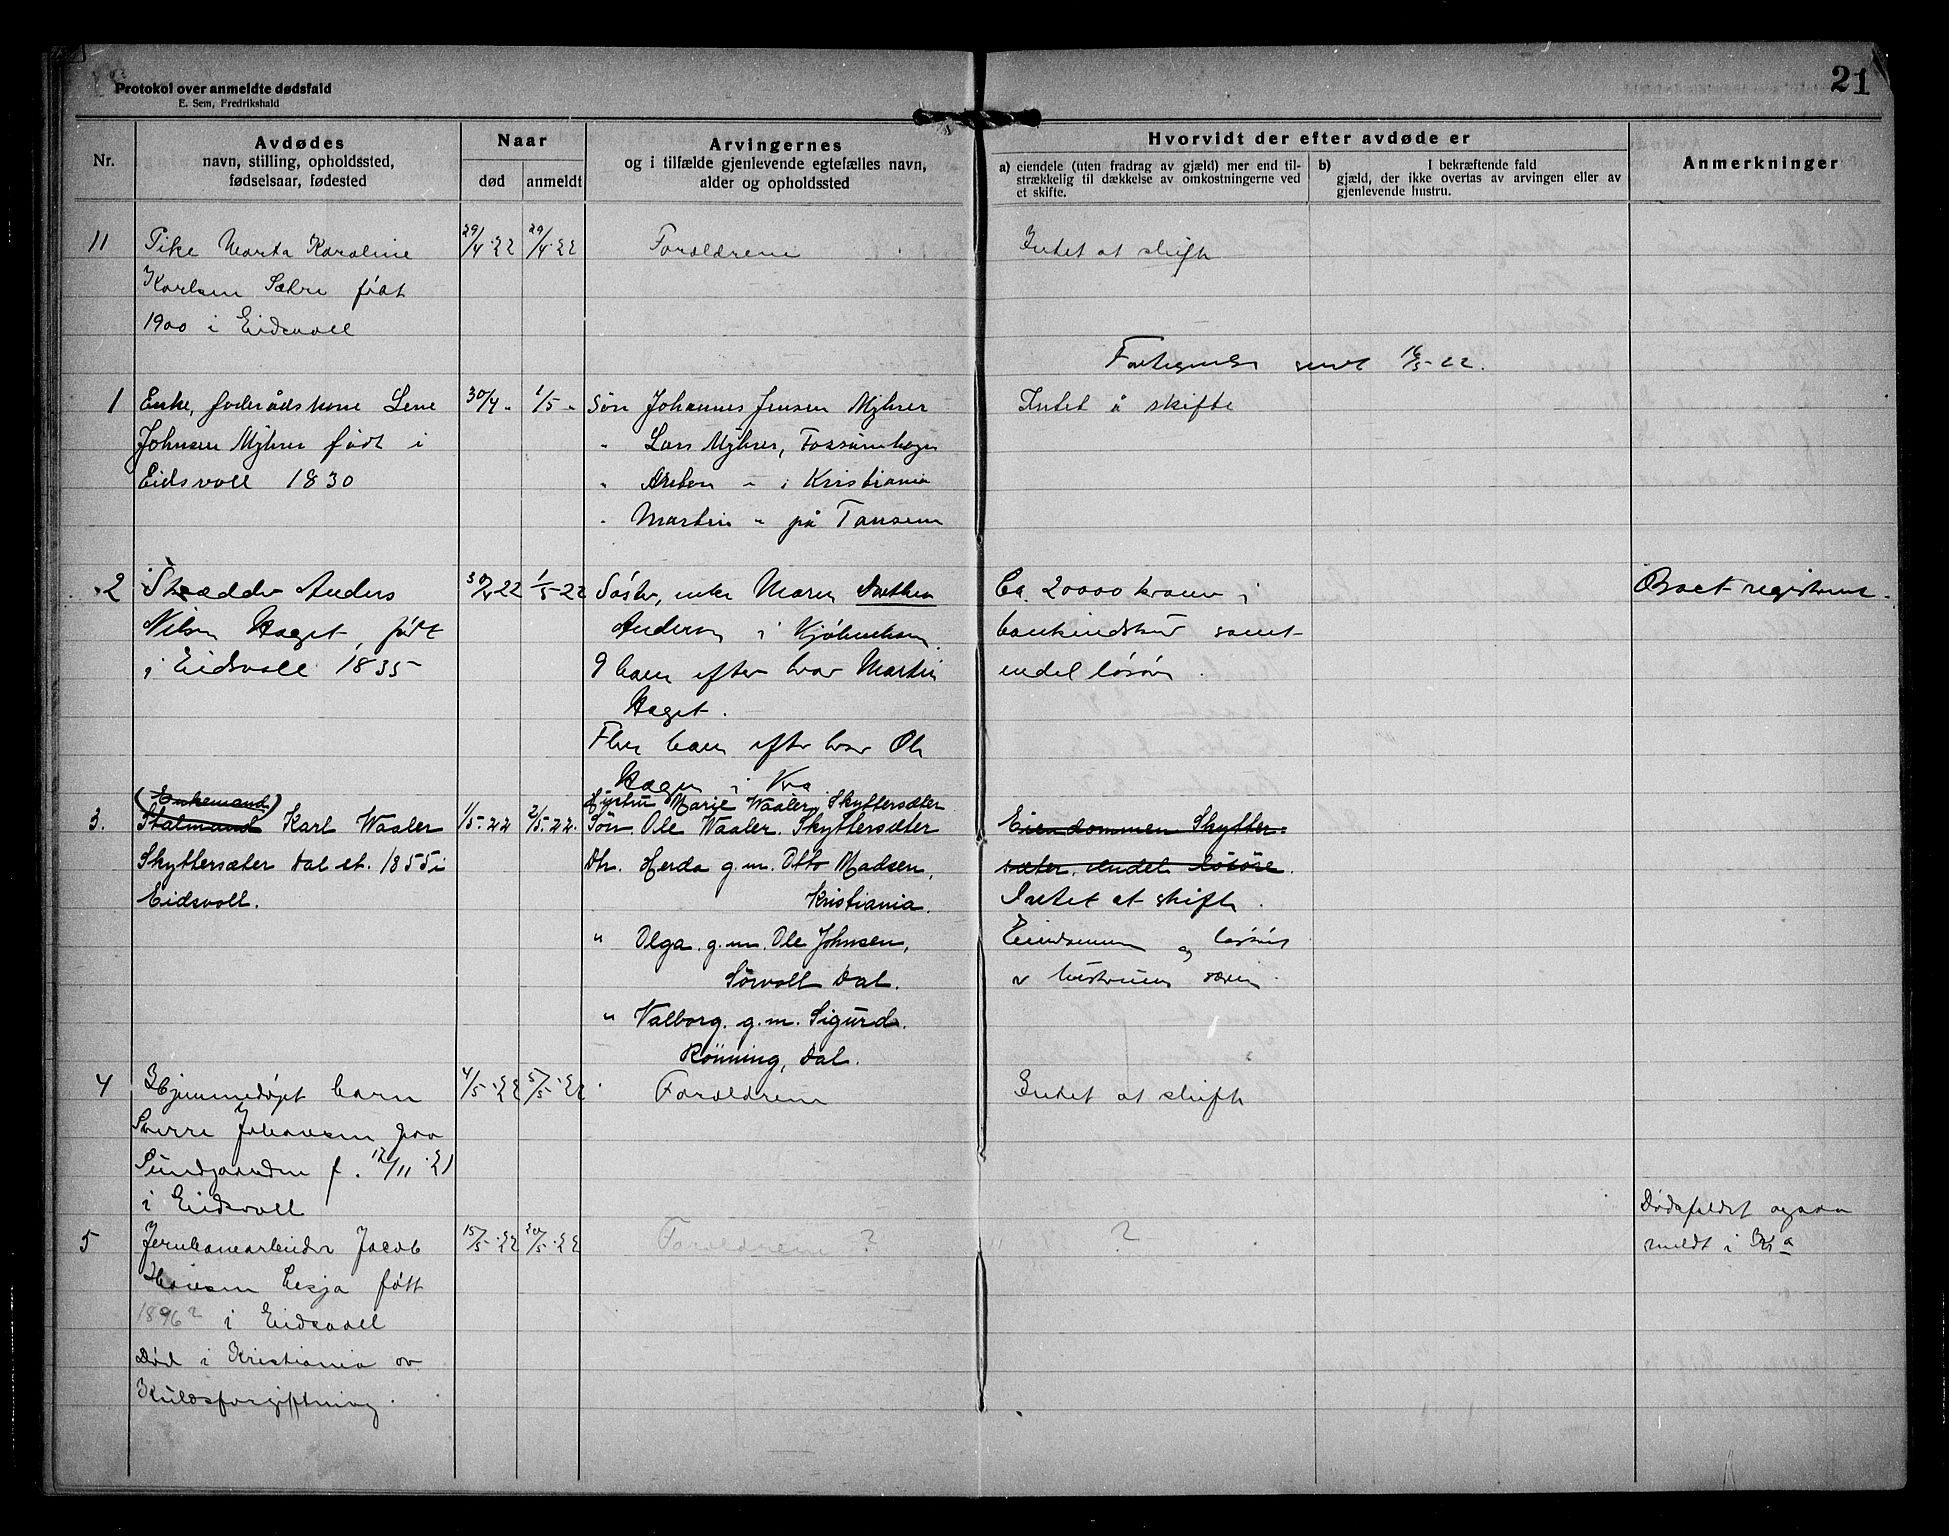 21
Protokol over anmeldte dødsfald
E. Sem, Fredrikshald
Nr.
Avdødes
navn, stilling, opholdssted,
fødselsaar, fødested
Naar
død
anmeldt
Arvingernes
og i tilfælde gjenlevende egtefælles navn,
alder og opholdssted
Hvorvidt der efter avdøde er
a) eiendele (uten fradrag av gjæld) mer end til-
strækkelig til dækkelse av omkostningerne ved
et skifte.
b) I bekræftende fald
gjæld, der ikke overtas av arvingen eller av
gjenlevende hustru.
Anmerkninger
11 Pike Marta Karoline 29/4·22 29/4·22 Foreldrene Intet at skifte
Karlsen Sæhre født
1900 i Eidsvoll
Fortegnelse sendt 16/5-22.
1 Enke, foderådskone Lene 30/4 - 1/5 - Søn Johannes Jensen Myhrer Intet å skifte
Johnsen Myhrer født i " Lars Myhrer,
Eidsvoll 1830 " Anton " i Kristiania
" Martin " på Tansem
2 Skrædder Anders 30/4-22 1/5-22 Søster, enke Maren Dorthea Ca. 20000 kroner i Boet registreres.
Nilsen Haget, født Andersen i Kjøbenhavn. bankindskud samt
i Eidsvoll 1835 9 barn efter bror Martin endel løsøre.
Haget.
Flere barn efter bror Ole
Hagen i Kra
(Enkemand) Hustru Marie Waaler, Skyttersæter
3. Stalmand Karl Waaler 1/5-22 2/5-22. Søn Ole Waaler. Skyttersæter Eiendommen Skytter-
Skyttersæter Dal st. 1855 i Dtr. Herda g.m. Otto Madsen, sæter, endel løsøre.
Eidsvoll. Kristiania. Intet at skifte.
" Olga. g.m. Ole Johnsen, Eiendommen og løsøre
Sørvoll Dal. er hustruens særeie.
" Valborg. g.m. Sigurd.
Rønning, Dal.
4 Hjemmedøpt barn 4/5·22 5/5·22 Foreldrene Intet at skifte
Sverre Johansen paa
Sundgaarden f. 12/11·21
i Eidsvoll
5 Jernbanearbeider Jacob 15/5·22 20/5·22 Foreldrene ? ? Dødsfaldet ogsaa
Hansen Lesja født meldt i Kra
1896? i Eidsvoll
Død i Kristiania av
Kulosforgiftning.